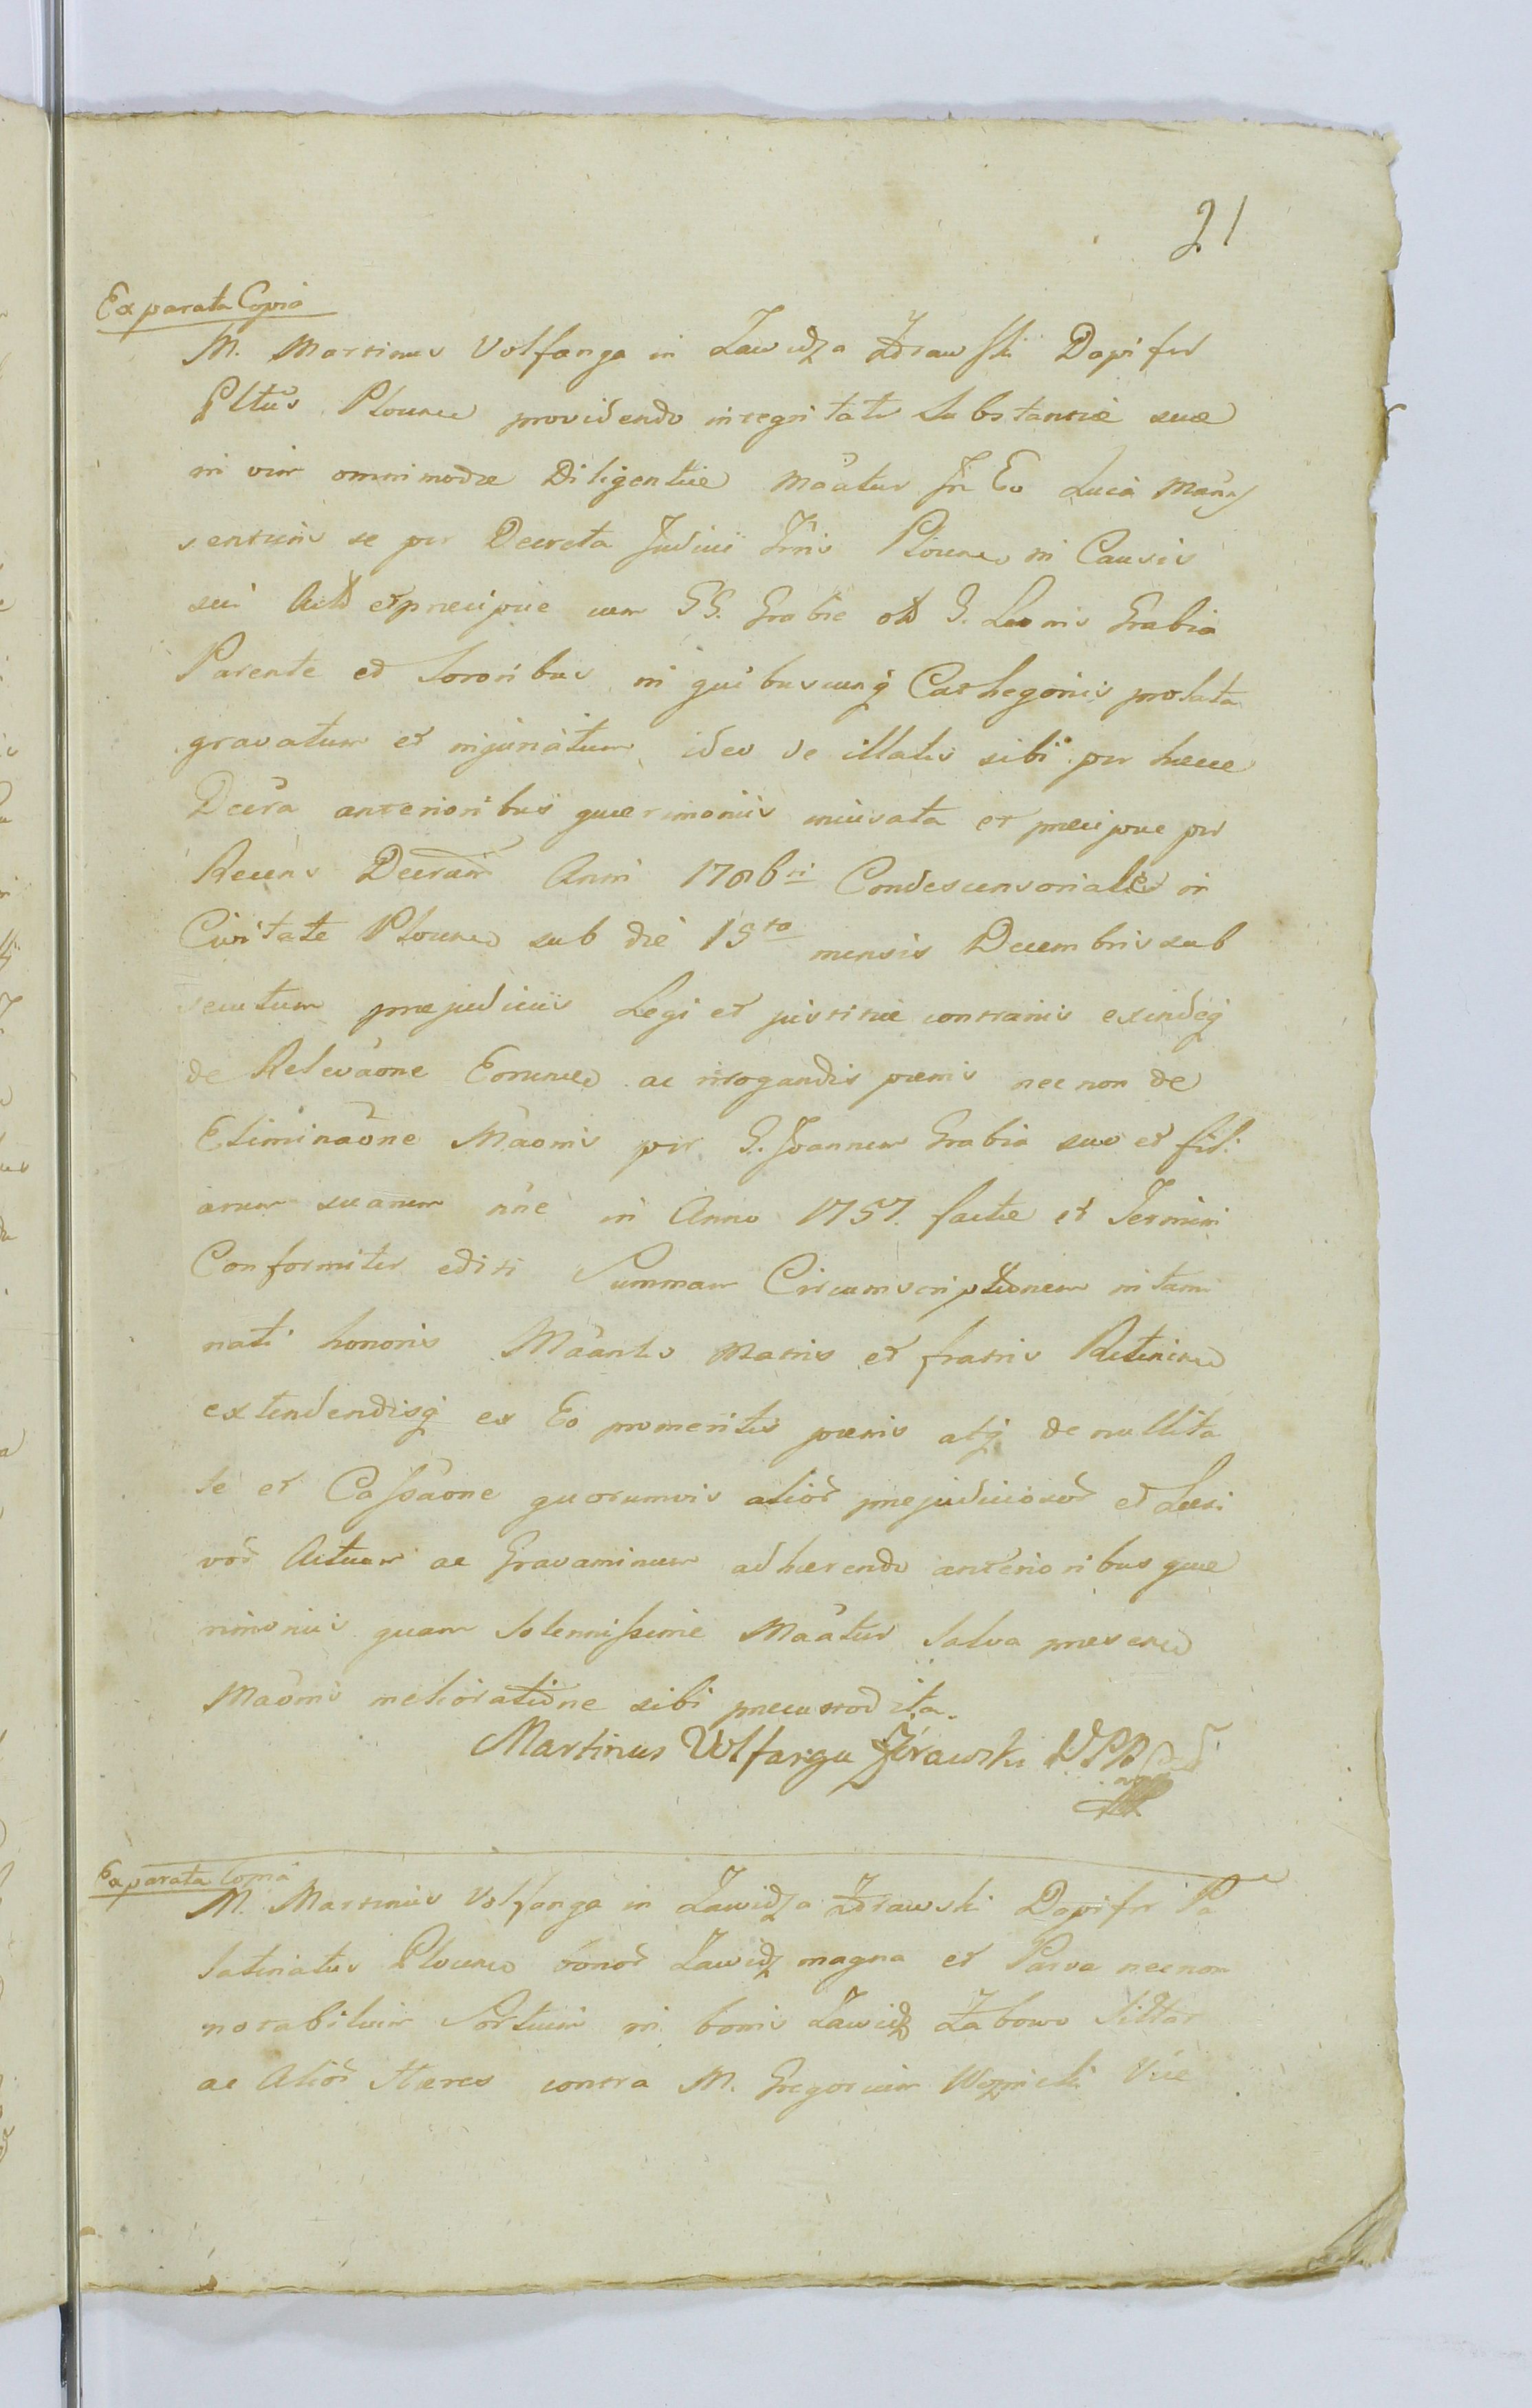 21
Ex parata Copia
M. Martinus Volfanga in Zawidza Żórawski Dapifer
Pltûs Plocen̄ providendo integritati Substantiæ suæ
in vim omnimodæ Diligentiæ Mãatur In Eo quia
sentiens se per Decreta Judicii Plocen̄ in Causis
sui et præcipue cum GG. Grabie G. Leonis Grabia
Parente et Sororibus in quibuscunq Cathegoriis prolata
gravatum et injuriatum, ideo de illatis sibi per hæcce
Decrã anterioribus quærimoniis incusata et præcipue per
Recens Anni 1786ti Condescensoriale in
Civitate Plocen̄ sub die 15ta mensis Decembris sub
secutum præjudiciis Legi et justitiæ contrariis exindeq
de Relevãone Eorum ac irrogandis pœnis nec non de
Eliminãone Mãonis per G. Joannem Grabia suo et fili
arum suarum nñe in Anno 1757. factæ et Termini
Conformiter editi Summam Circumscriptionem intami
nati honoris Mãantis Matris et fratris
extendendisq ex Eo promeritis pœnis atq de nullita
te et Cassãone quorumvis aliõr præjudiciosõr et Læsi
võr Actuum ac Gravaminum adhærendo anterioribus quæ
rimoniis quam Solennissime Mãatur Salva præsen̄
Mãonis melioratione sibi præcustodita.
Martinus Volfanga Żórawski
Ex parata Copia
M. Martinus Volfanga in Zawidza Żórawski Dapifer Pa
latinatus Plocen̄ bonõr Zawidz magna et Parva necnon
notabilium Sortium in bonis Zawidz Żabowo
ac Aliõr Hæres contra M. Gregorium Woznicki Vice